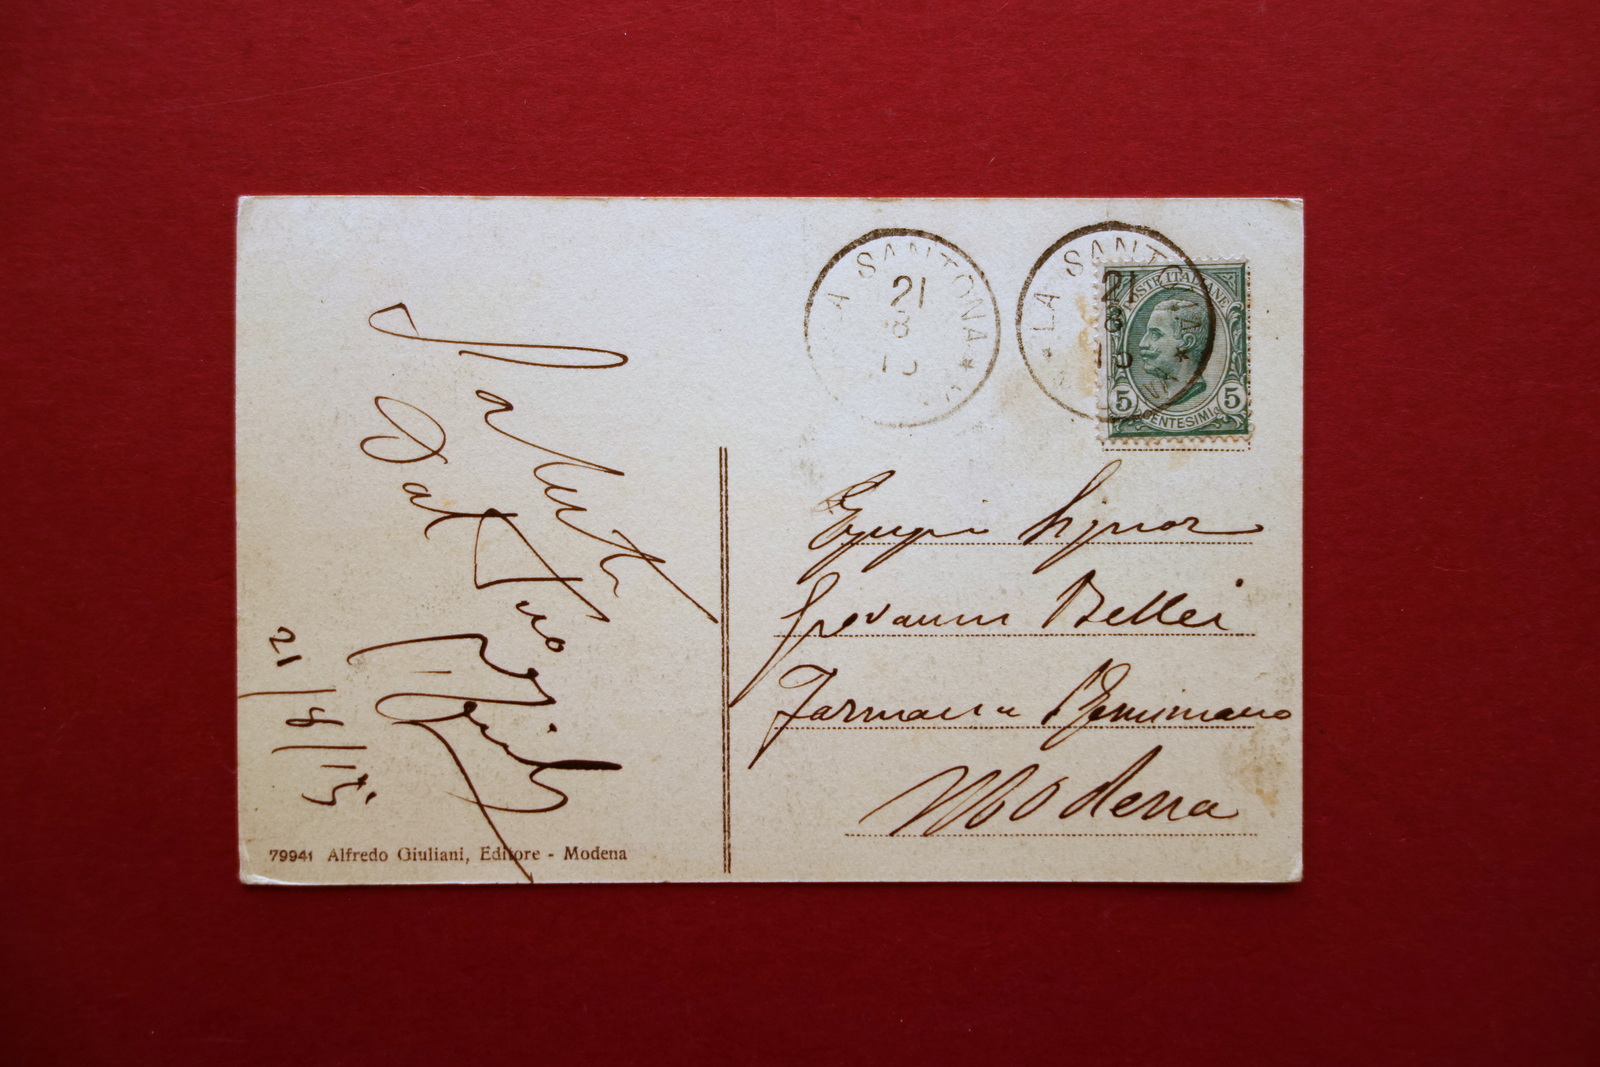 LA SANTONA
21
8
15
LA SANTONA
21
8
15
POSTE ITALIANE
5 5
CENTESIMI
Saluti
Dal Tuo
21/8/15
Egregio Signor
Giovanni Bellei
Farmacia
Modena
79941 Alfredo Giuliani, Editore - Modena